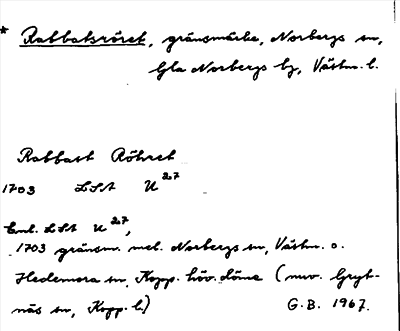 * Rabbatsröret, gränsmärke, Norbergs sn,
Gla Norbergs by, Västm. l.
Rabbast Röhret
1703 LSA U 27
Enl. LSA U 27,
1703 gränsm. mel. Norbergs sn, Västm. o.
Hedemora sn, Kopp. höv.döme (nuv. Gryt-
näs sn, Kopp. l.)
G.B. 1967.